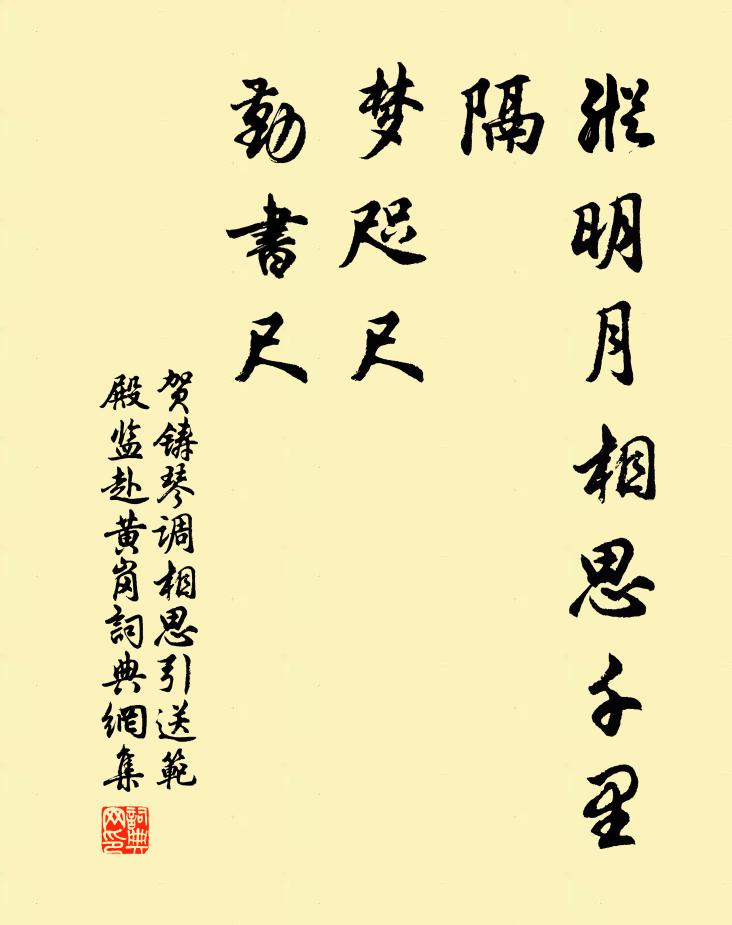 縱明月相思千里
隔
梦咫尺
勤書尺
贺鑄琴调相思引送範
殿监赴黄岗詞典網集
詞典
网印